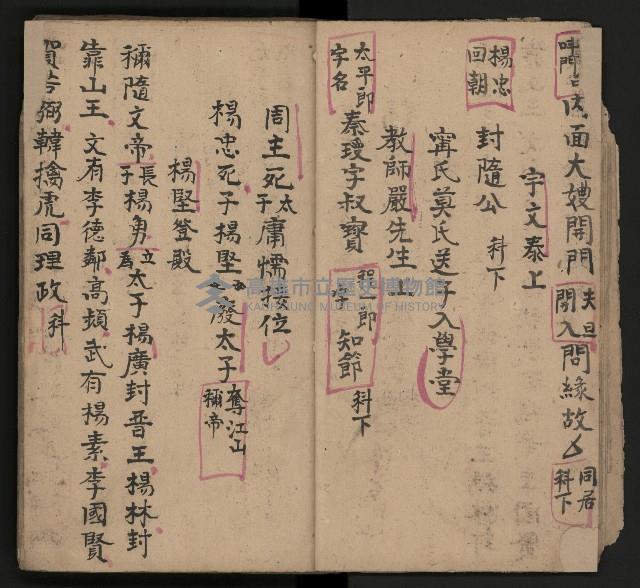 叫門 內面大嫂開門 夫旦開入 問緣故 同居科下
宇文泰上
楊忠回朝 封隨公 科下
甯氏莫氏送子入學堂
教師嚴先生
太平郎字名 秦瓊字叔寶 程 郎 知節 科下
周主死 太子庸懦接位
楊忠死子楊堅 廢太子 奪江山稱帝
楊堅登殿
稱隨文帝 長子楊勇 立為太子 楊廣封晋王 楊林封
靠山王 文有李德鄰高熲 武有楊素李國賢
賀若弼韓擒虎同理政 科
高雄市立歷史博物館
KAOHSIUNG MUSEUM OF HISTORY